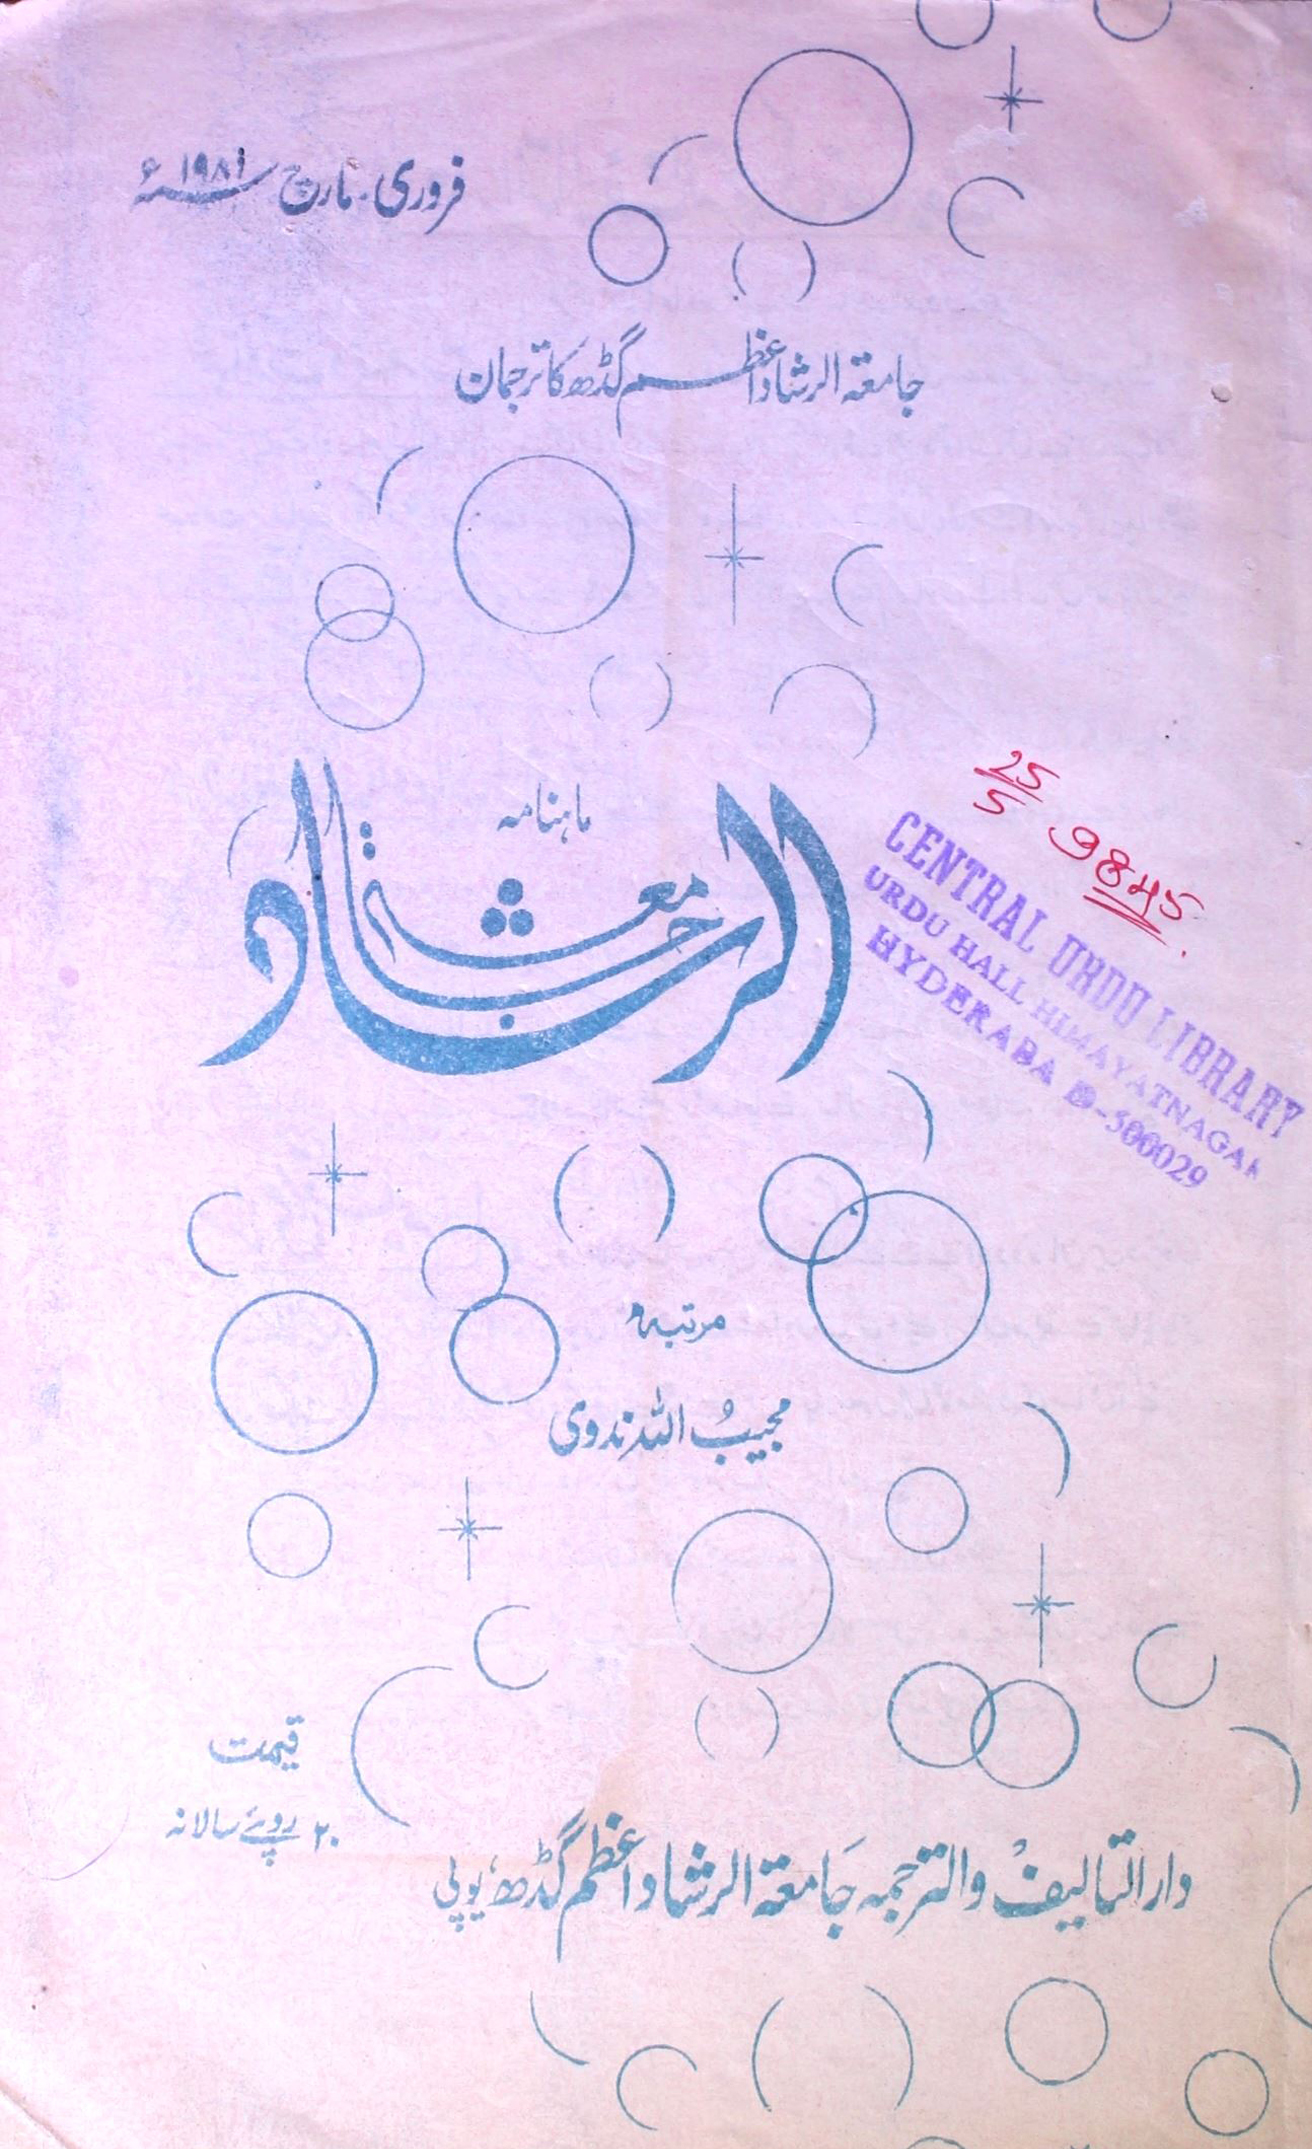 فروری۔ مارچ ۱۹۸۱ء
جامعۃ الرشاد اعظم گڈھ کا ترجمان
ماہنامہ
جامعۃ الرشاد
25/5 9845
CENTRAL URDU LIBRARY
URDU HALL HIMAYATNAGAR
HYDERABAD-500029
مرتبہ
مجیبُ اللہ ندوی
قیمت
۲۰ روپئے سالانہ
دار التالیف والترجمہ جامعۃ الرشاد اعظم گڈھ، یوپی